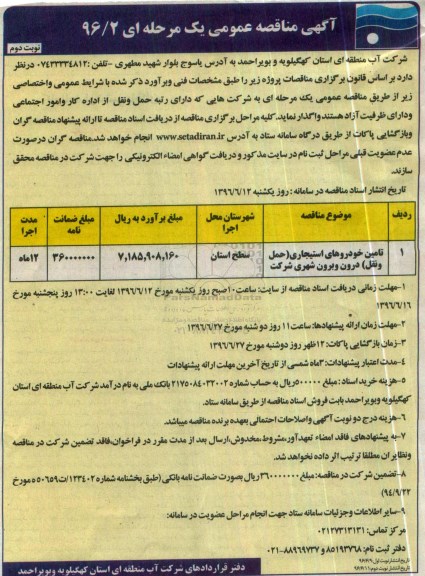 آگهی مناقصه عمومی یک مرحله ای ۹۶/۲
نوبت دوم
شرکت آب منطقه ای استان کهگیلویه و بویراحمد به آدرس یاسوج بلوار شهید مطهری -تلفن :۰۷۴۳۳۳۳۴۸۱۲ درنظر
دارد براساس قانون برگزاری مناقصات پروژه زیر را طبق مشخصات فنی وبرآورد ذکر شده با شرایط عمومی واختصاصی
زیر از طریق مناقصه عمومی یک مرحله ای به شرکت هایی که دارای رتبه حمل ونقل از اداره کار وامور اجتماعی
ودارای ظرفیت آزاد هستند واگذار نماید.کلیه مراحل برگزاری مناقصه از دریافت اسناد مناقصه تا ارائه پیشنهاد مناقصه گران
وبازگشایی پاکات از طریق درگاه سامانه ستاد به آدرس www.setadiran.ir انجام خواهد شد.مناقصه گران درصورت
عدم عضویت قبلی مراحل ثبت نام در سایت مذکور و دریافت گواهی امضاء الکترونیکی را جهت شرکت در مناقصه محقق
سازند.
تاریخ انتشار اسناد مناقصه در سامانه : روز یکشنبه ۱۳۹۶/۶/۱۲
ردیف موضوع مناقصه شهرستان محل اجرا مبلغ برآورد به ریال مبلغ ضمانت نامه مدت اجرا
۱ تامین خودروهای استیجاری(حمل ونقل) درون وبرون شهری شرکت سطح استان ۷,۱۸۵,۹۰۸,۱۶۰ ۳۶۰۰۰۰۰۰۰ ۱۲ماه
۱-مهلت زمانی دریافت اسناد مناقصه از سایت: ساعت ۱۰صبح روز یکشنبه مورخ ۱۳۹۶/۶/۱۲ لغایت ۱۳:۰۰ روز پنجشنبه مورخ
۱۳۹۶/۶/۱۶
۲-مهلت زمان ارائه پیشنهادها: ساعت ۱۱ روز دوشنبه مورخ ۱۳۹۶/۶/۲۷
۳-زمان بازگشایی پاکات: ۱۲ظهر روز دوشنبه مورخ ۱۳۹۶/۶/۲۷
۴-مدت اعتبار پیشنهادات:۳ماه شمسی از تاریخ آخرین مهلت ارائه پیشنهادات
۵-هزینه خرید اسناد : مبلغ ۵۰۰۰۰۰ریال به حساب شماره ۲۱۷۵۰۸۴۰۲۲۰۰۲ بانک ملی به نام درآمد شرکت آب منطقه ای استان
کهگیلویه وبویراحمد بابت فروش اسناد مناقصه از طریق سامانه ستاد.
۶-هزینه درج دو نوبت آگهی واصلاحات احتمالی بعهده برنده مناقصه میباشد.
۷-به پیشنهادهای فاقد امضاء تعهدآور،مشروط،مخدوش،ارسال بعد از مدت مقرر در فراخوان،فاقد تضمین شرکت در مناقصه
ونظایران مطلقا ترتیب اثر داده نخواهد شد.
۸-تضمین شرکت در مناقصه: مبلغ ۳۶۰۰۰۰۰۰۰ریال بصورت ضمانت نامه بانکی (طبق بخشنامه شماره ۱۲۳۴۰۲/ت۵۰۶۵۹ه مورخ
۹۴/۹/۲۲)
۹-سایر اطلاعات وجزئیات سامانه ستاد جهت انجام مراحل عضویت در سامانه:
مرکز تماس: ۰۲۱۲۷۳۱۳۱۳۱
دفتر ثبت نام: ۸۵۱۹۳۷۶۸ و ۸۸۹۶۹۷۳۷-۰۲۱
تاریخ انتشار نوبت اول:۹۶/۶/۹
تاریخ انتشار نوبت دوم:۹۶/۶/۱۱
دفتر قراردادهای شرکت آب منطقه ای استان کهگیلویه وبویراحمد